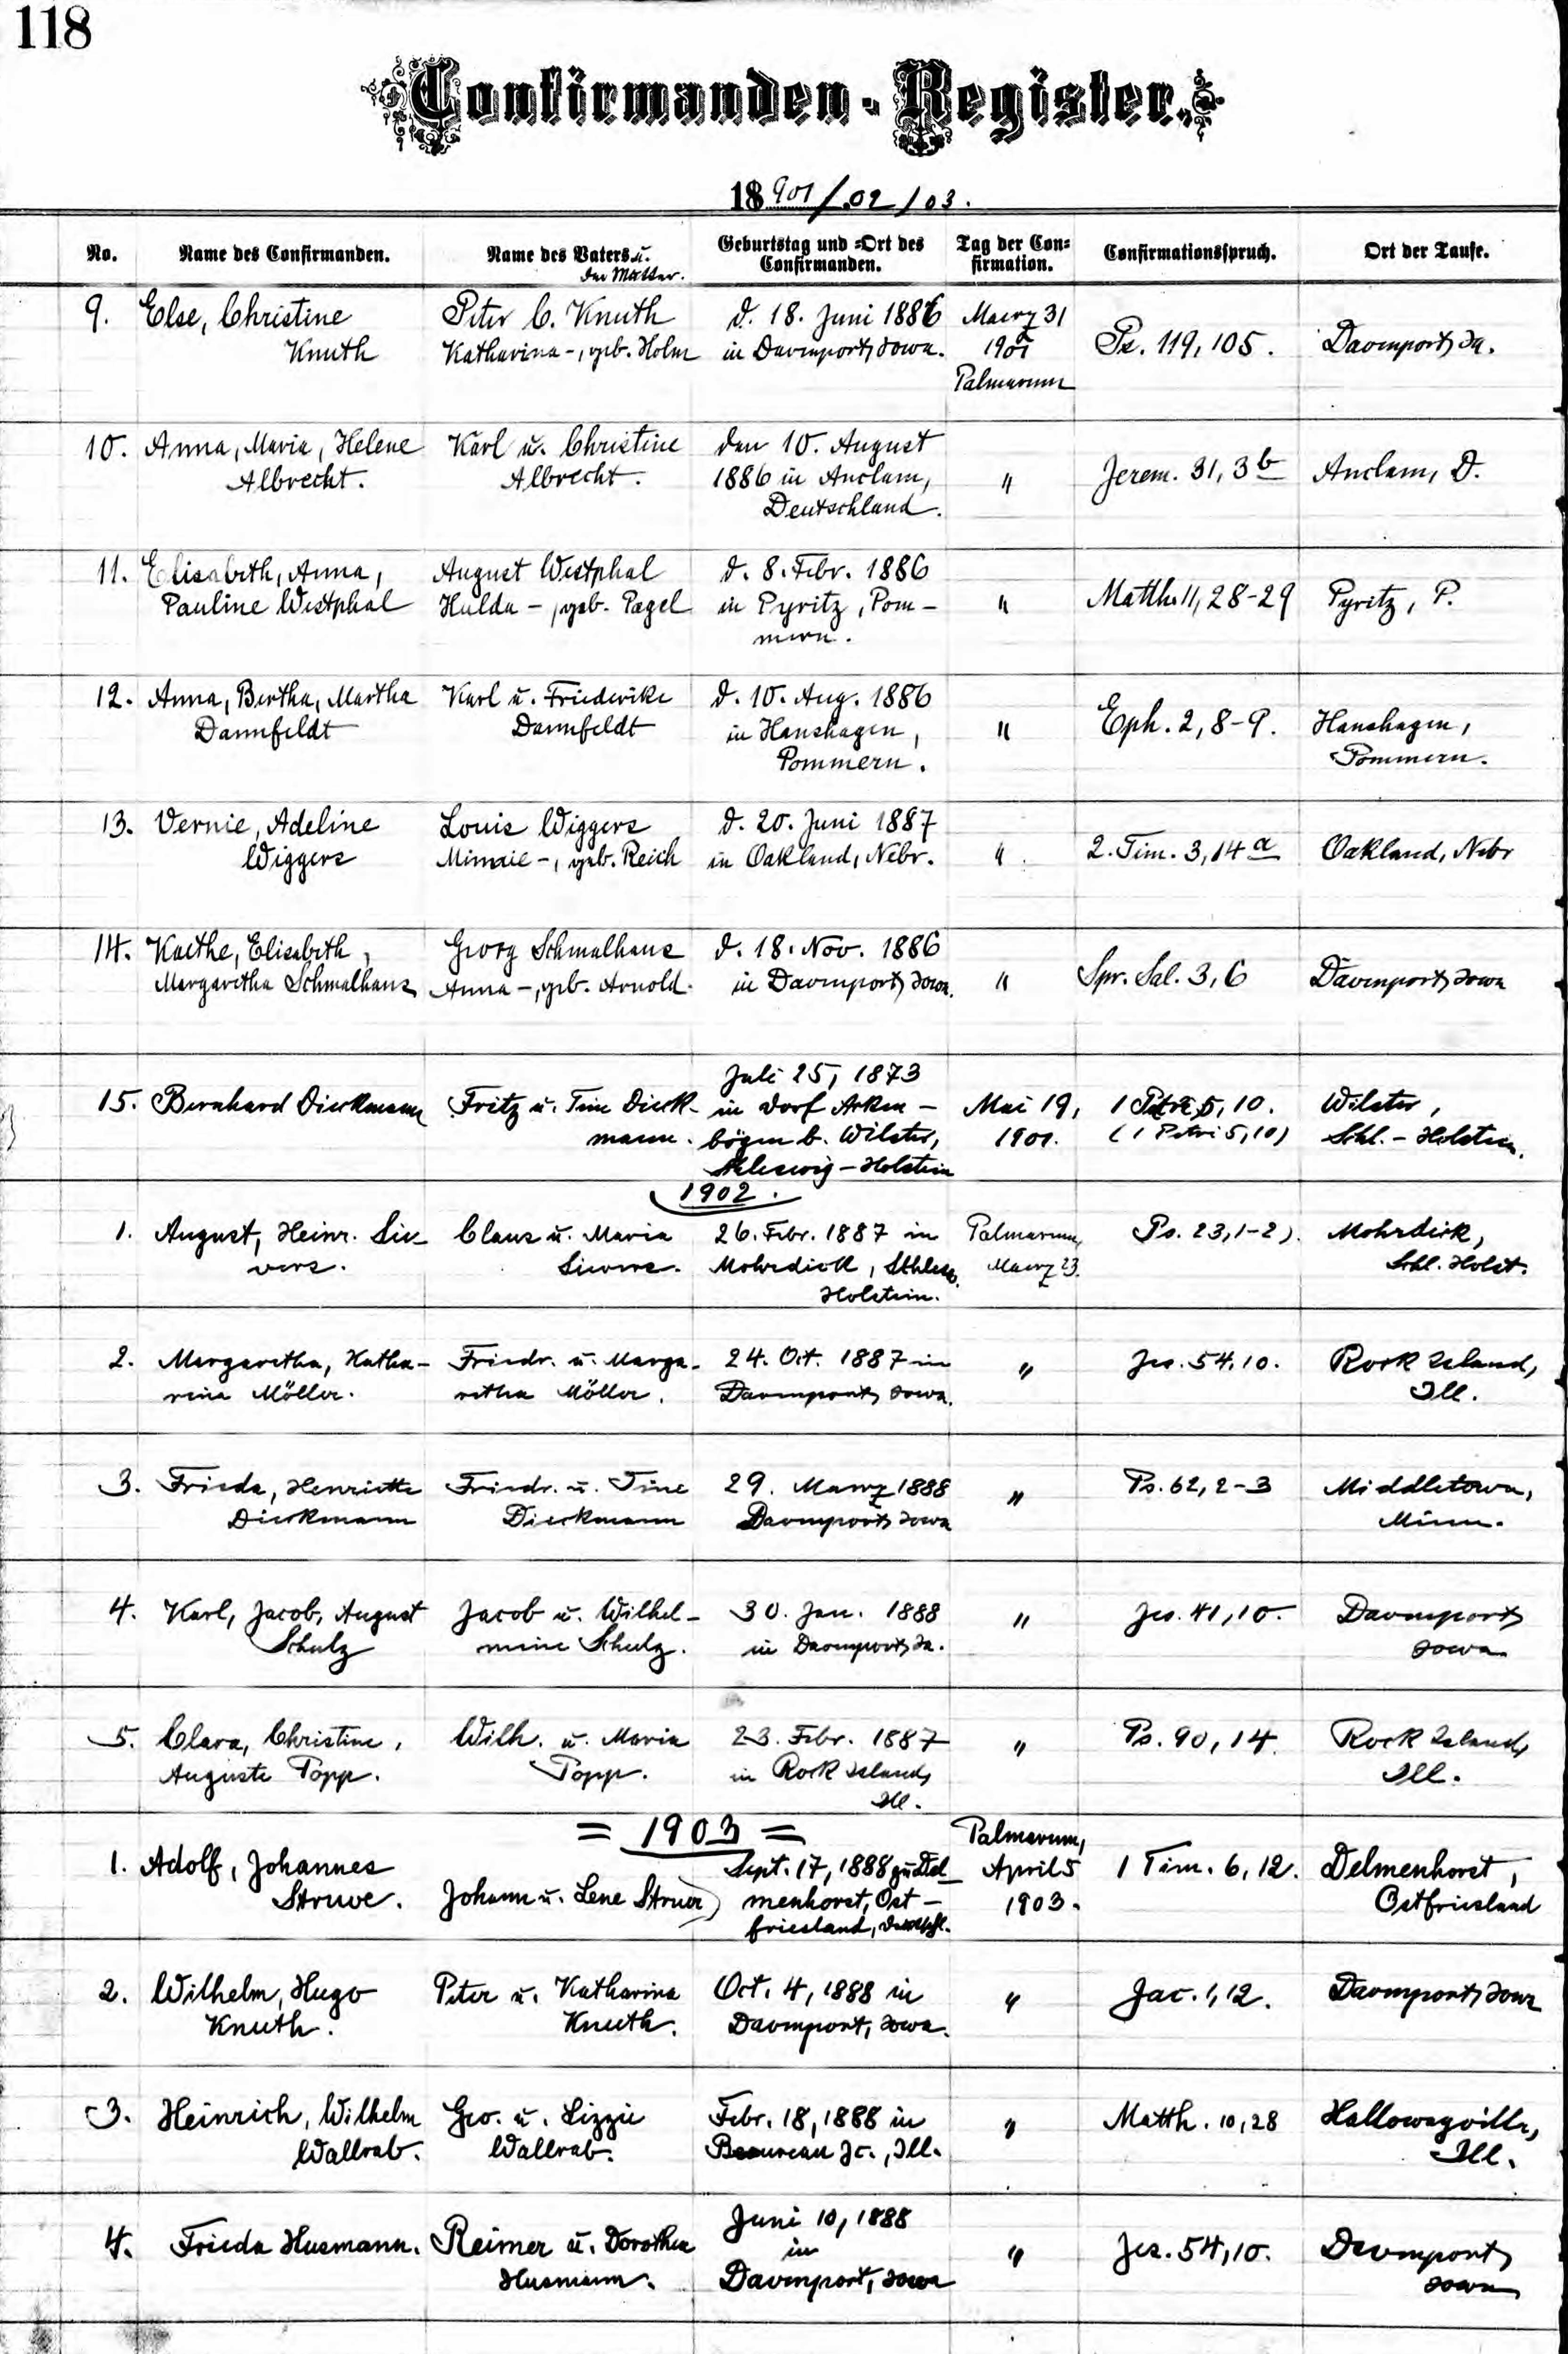 118
Confirmanden-Register.
18901/02/03.
No. Name des Confirmanden. Name des Vaters u. der Mutter. Geburtstag und -Ort des Confirmanden. Tag der Confirmation. Confirmationsspruch. Ort der Taufe.
9. Else, Christine Peter C. Knuth d. 18. Juni 1886 Maerz 31
Knuth Katharina -, geb. Holm in Davenport, Iowa. 1901 Ps. 119, 105. Davenport, Ia.
Palmarum
10. Anna, Maria, Helene Karl u. Christine den 10. August
Albrecht. Albrecht. 1886 in Anclam, " Jerem. 31, 3b Anclam, D.
Deutschland.
11. Elisabeth, Anna, August Westphal d. 8. Febr. 1886
Pauline Westphal Hulda -, geb. Pagel in Pyritz, Pom- " Matth. 11, 28-29 Pyritz, P.
mern.
12. Anna, Bertha, Martha Karl u. Friederike d. 10. Aug. 1886
Dannfeldt Dannfeldt in Hanshagen, " Eph. 2, 8-9. Hanshagen,
Pommern. Pommern.
13. Vernie, Adeline Louis Wiggers d. 20. Juni 1887
Wiggers Minnie -, geb. Reich in Oakland, Nebr. " 2. Tim. 3, 14a Oakland, Nebr
14. Kaethe, Elisabeth, Georg Schmalhaus d. 18. Nov. 1886
Margaretha Schmalhaus Anna -, geb. Arnold. in Davenport, Iowa. " Spr. Sal. 3, 6 Davenport, Iowa
Juli 25, 1873
15. Bernhard Dieckmann Fritz u. Tine Dieck- in Dorf Arken- Mai 19, 1 Petri 5, 10. Wilster,
mann. bögen b. Wilster, 1901. (1 Petri 5, 10) Schl.-Holstein.
Schleswig-Holstein
1902.
1. August, Heinr. Sie- Claus u. Maria 26. Febr. 1887 in Palmarum, Ps. 23, 1-2). Mohrdiek,
vers. Sievers. Mohrdiek, Schlesw. Maerz 23. Schl. Holst.
Holstein.
2. Margaretha, Katha- Friedr. u. Marga- 24. Oct. 1887 in " Jes. 54, 10. Rock Island,
rina Möller. retha Möller. Davenport, Iowa. Ill.
3. Frieda, Henriette Friedr. u. Tine 29. Maerz 1888 " Ps. 62, 2-3 Middletown,
Dieckmann Dieckmann Davenport, Iowa Minn.
4. Karl, Jacob, August Jacob u. Wilhel- 30. Jan. 1888 " Jes. 41, 10. Davenport,
Schulz mine Schulz. in Davenport, Ia. Iowa
5. Clara, Christine, Wilh. u. Maria 23. Febr. 1887 " Ps. 90, 14. Rock Island,
Auguste Popp. Popp. in Rock Island, Ill.
Ill.
= 1903 = Palmarum,
1. Adolf, Johannes Sept. 17, 1888 zu Del- April 5 1 Tim. 6, 12. Delmenhorst,
Struve. Johann u. Lene Struve) menhorst, Ost- 1903. Ostfriesland
friesland, Deutschl.
2. Wilhelm, Hugo Peter u. Katharina Oct. 4, 1888 in " Jac. 1, 12. Davenport, Iowa
Knuth. Knuth. Davenport, Iowa.
3. Heinrich, Wilhelm Geo. u. Lizzie Febr. 18, 1888 in " Matth. 10, 28 Hallowayville,
Wallrab. Wallrab. Beaureau Jc., Ill. Ill.
Juni 10, 1888
4. Frieda Husmann. Reimer u. Dorothea in " Jes. 54, 10. Davenport,
Husmann. Davenport, Iowa Iowa